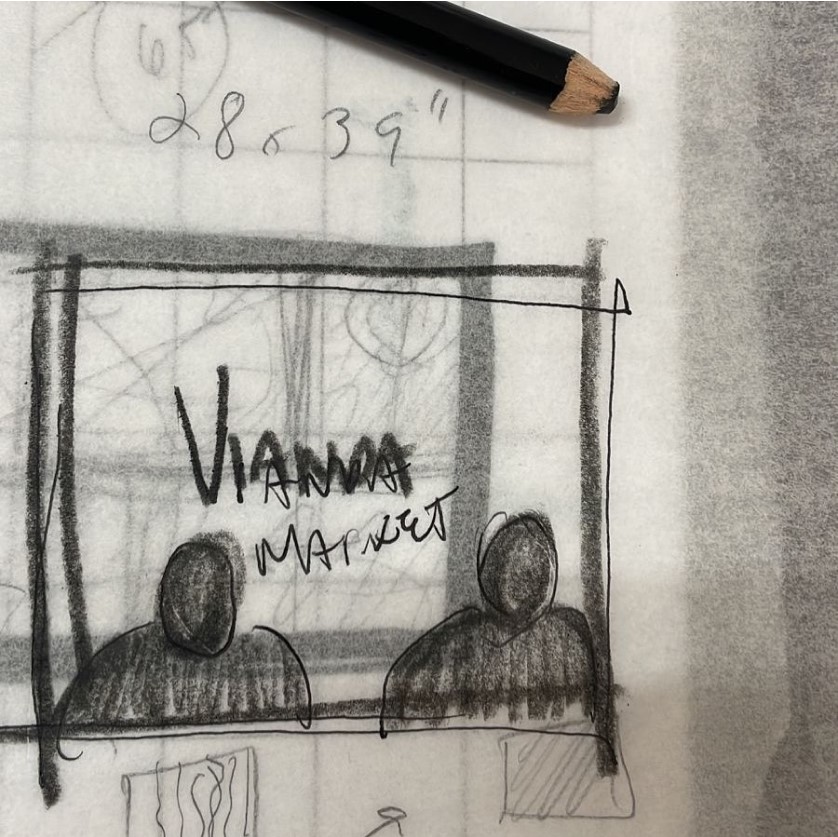 65"
28 x 39"
VIANDA
MARKET